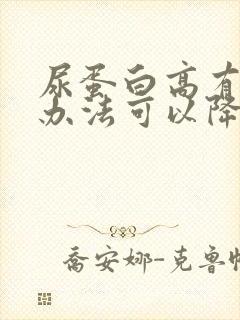 尿蛋白高有
办法可以降
喬安娜-克鲁